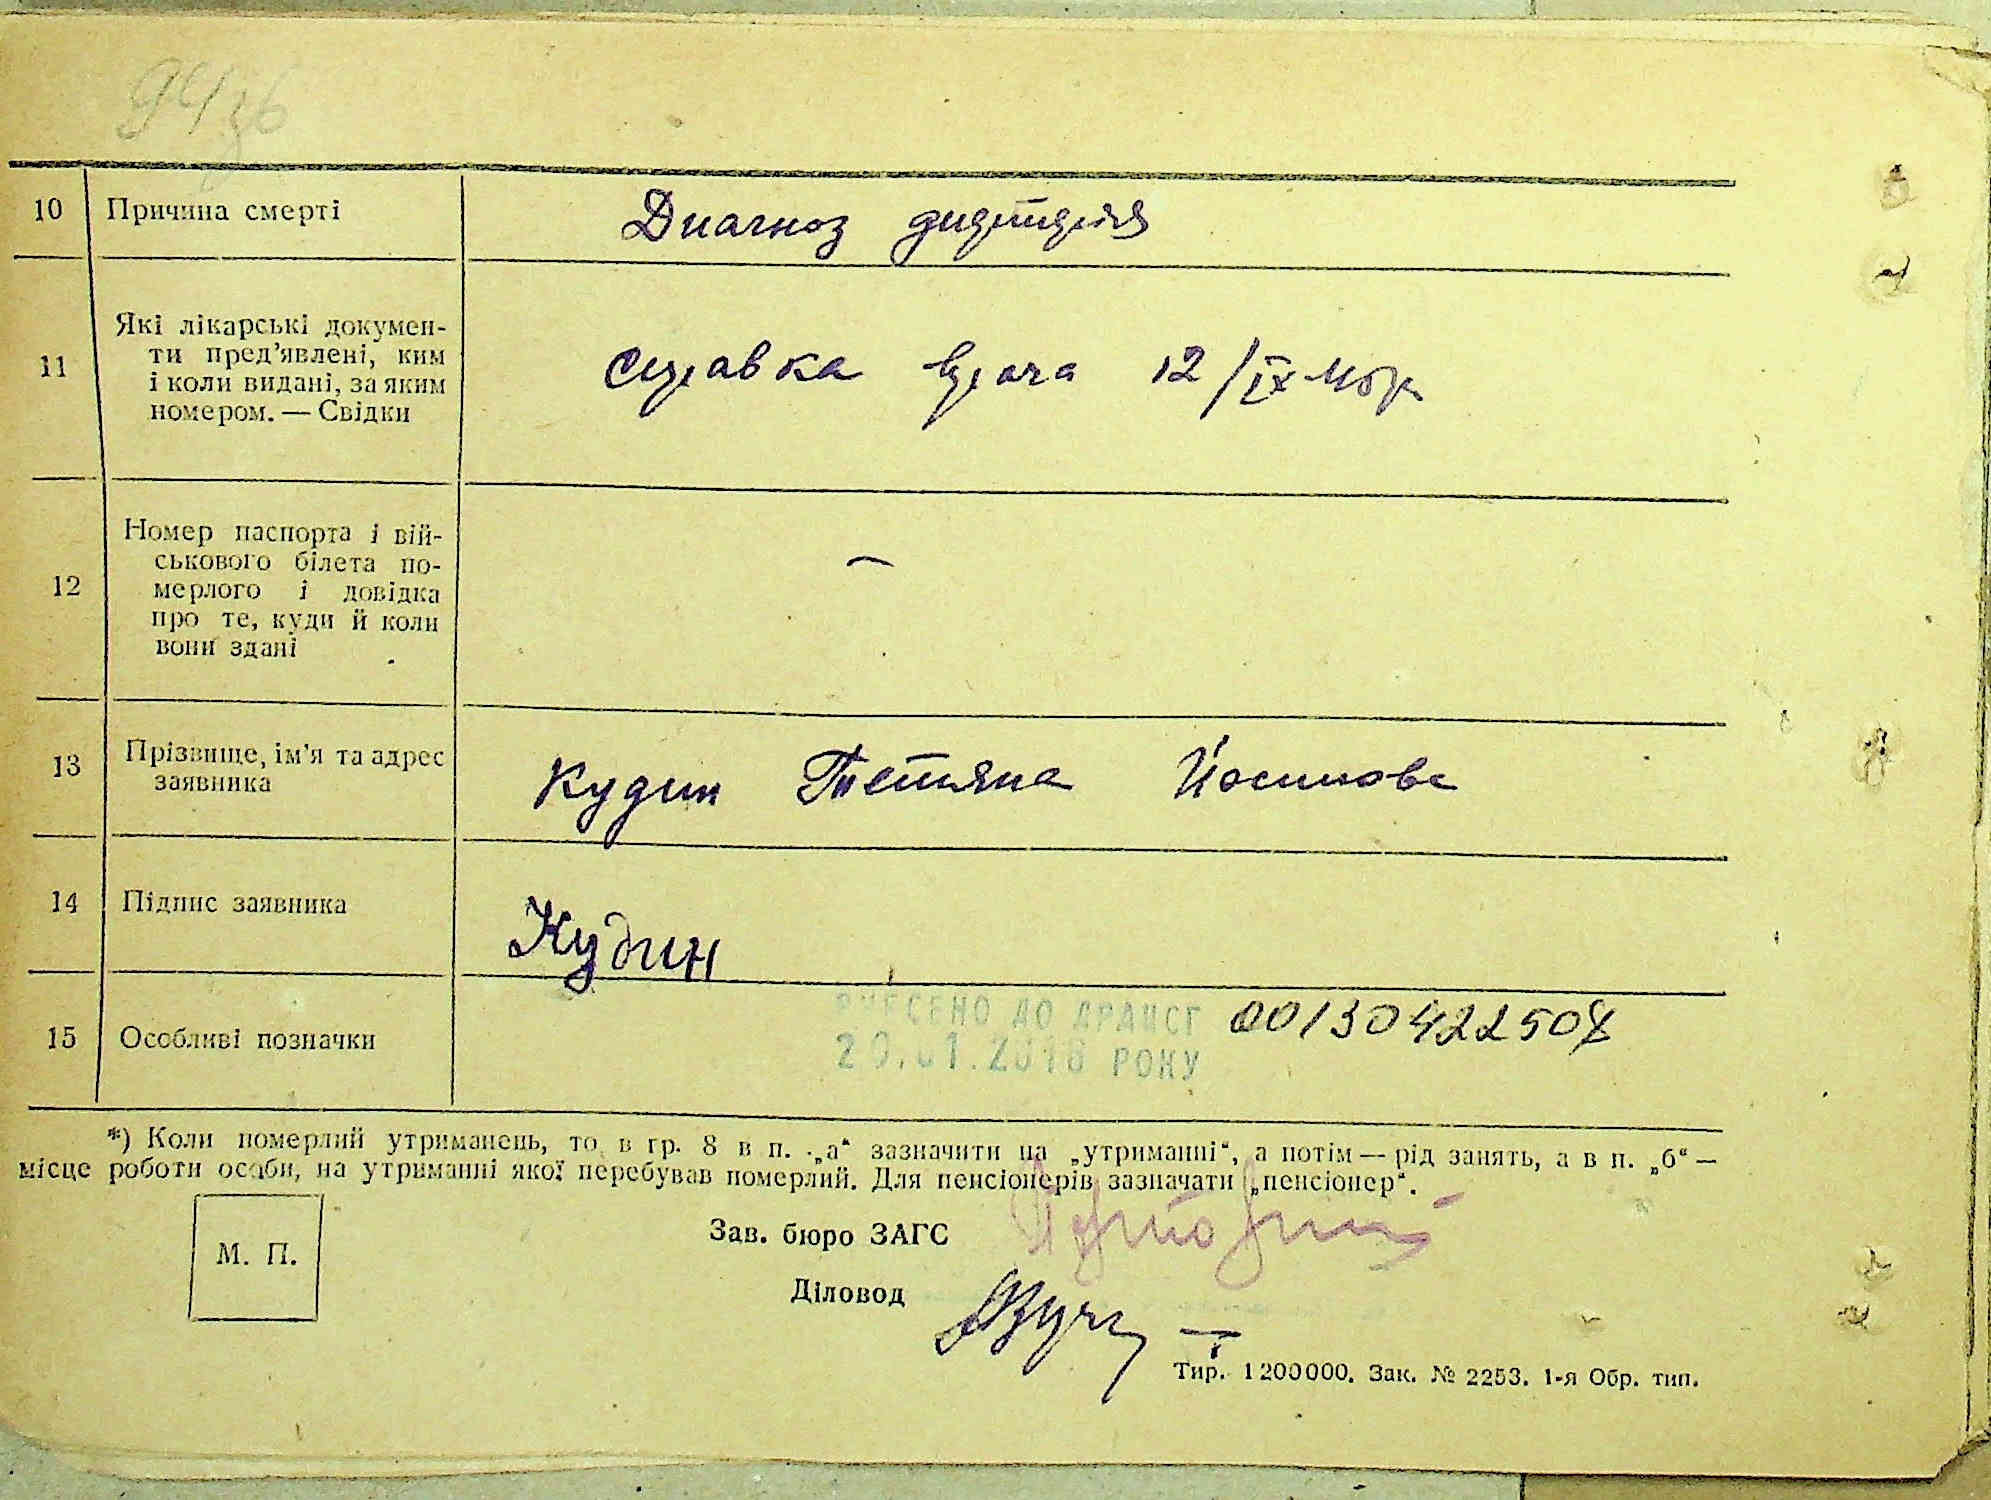 94 зв
10 Причина смерті Диагноз
11 Які лікарські докумен-
ти пред'явлені, ким
і коли видані, за яким
номером. — Свідки
Справка врача 12/IX 1945 р.
12 Номер паспорта і вій-
ськового білета по-
мерлого і довідка
про те, куди й коли
вони здані
—
13 Прізвище, ім'я та адрес
заявника
Кудин Тетяна Йосипова
14 Підпис заявника Кудин
15 Особливі позначки
ВНЕСЕНО ДО ДРАЦСГ
20.01.2018 РОКУ
*) Коли померлий утриманець, то в гр. 8 в п. „а“ зазначити на „утриманні“, а потім — рід занять, а в п. „б“ —
місце роботи особи, на утриманні якої перебував померлий. Для пенсіонерів зазначати „пенсіонер“.
М. П.
Зав. бюро ЗАГС
Діловод
Тир. 1200000. Зак. № 2253. 1-я Обр. тип.